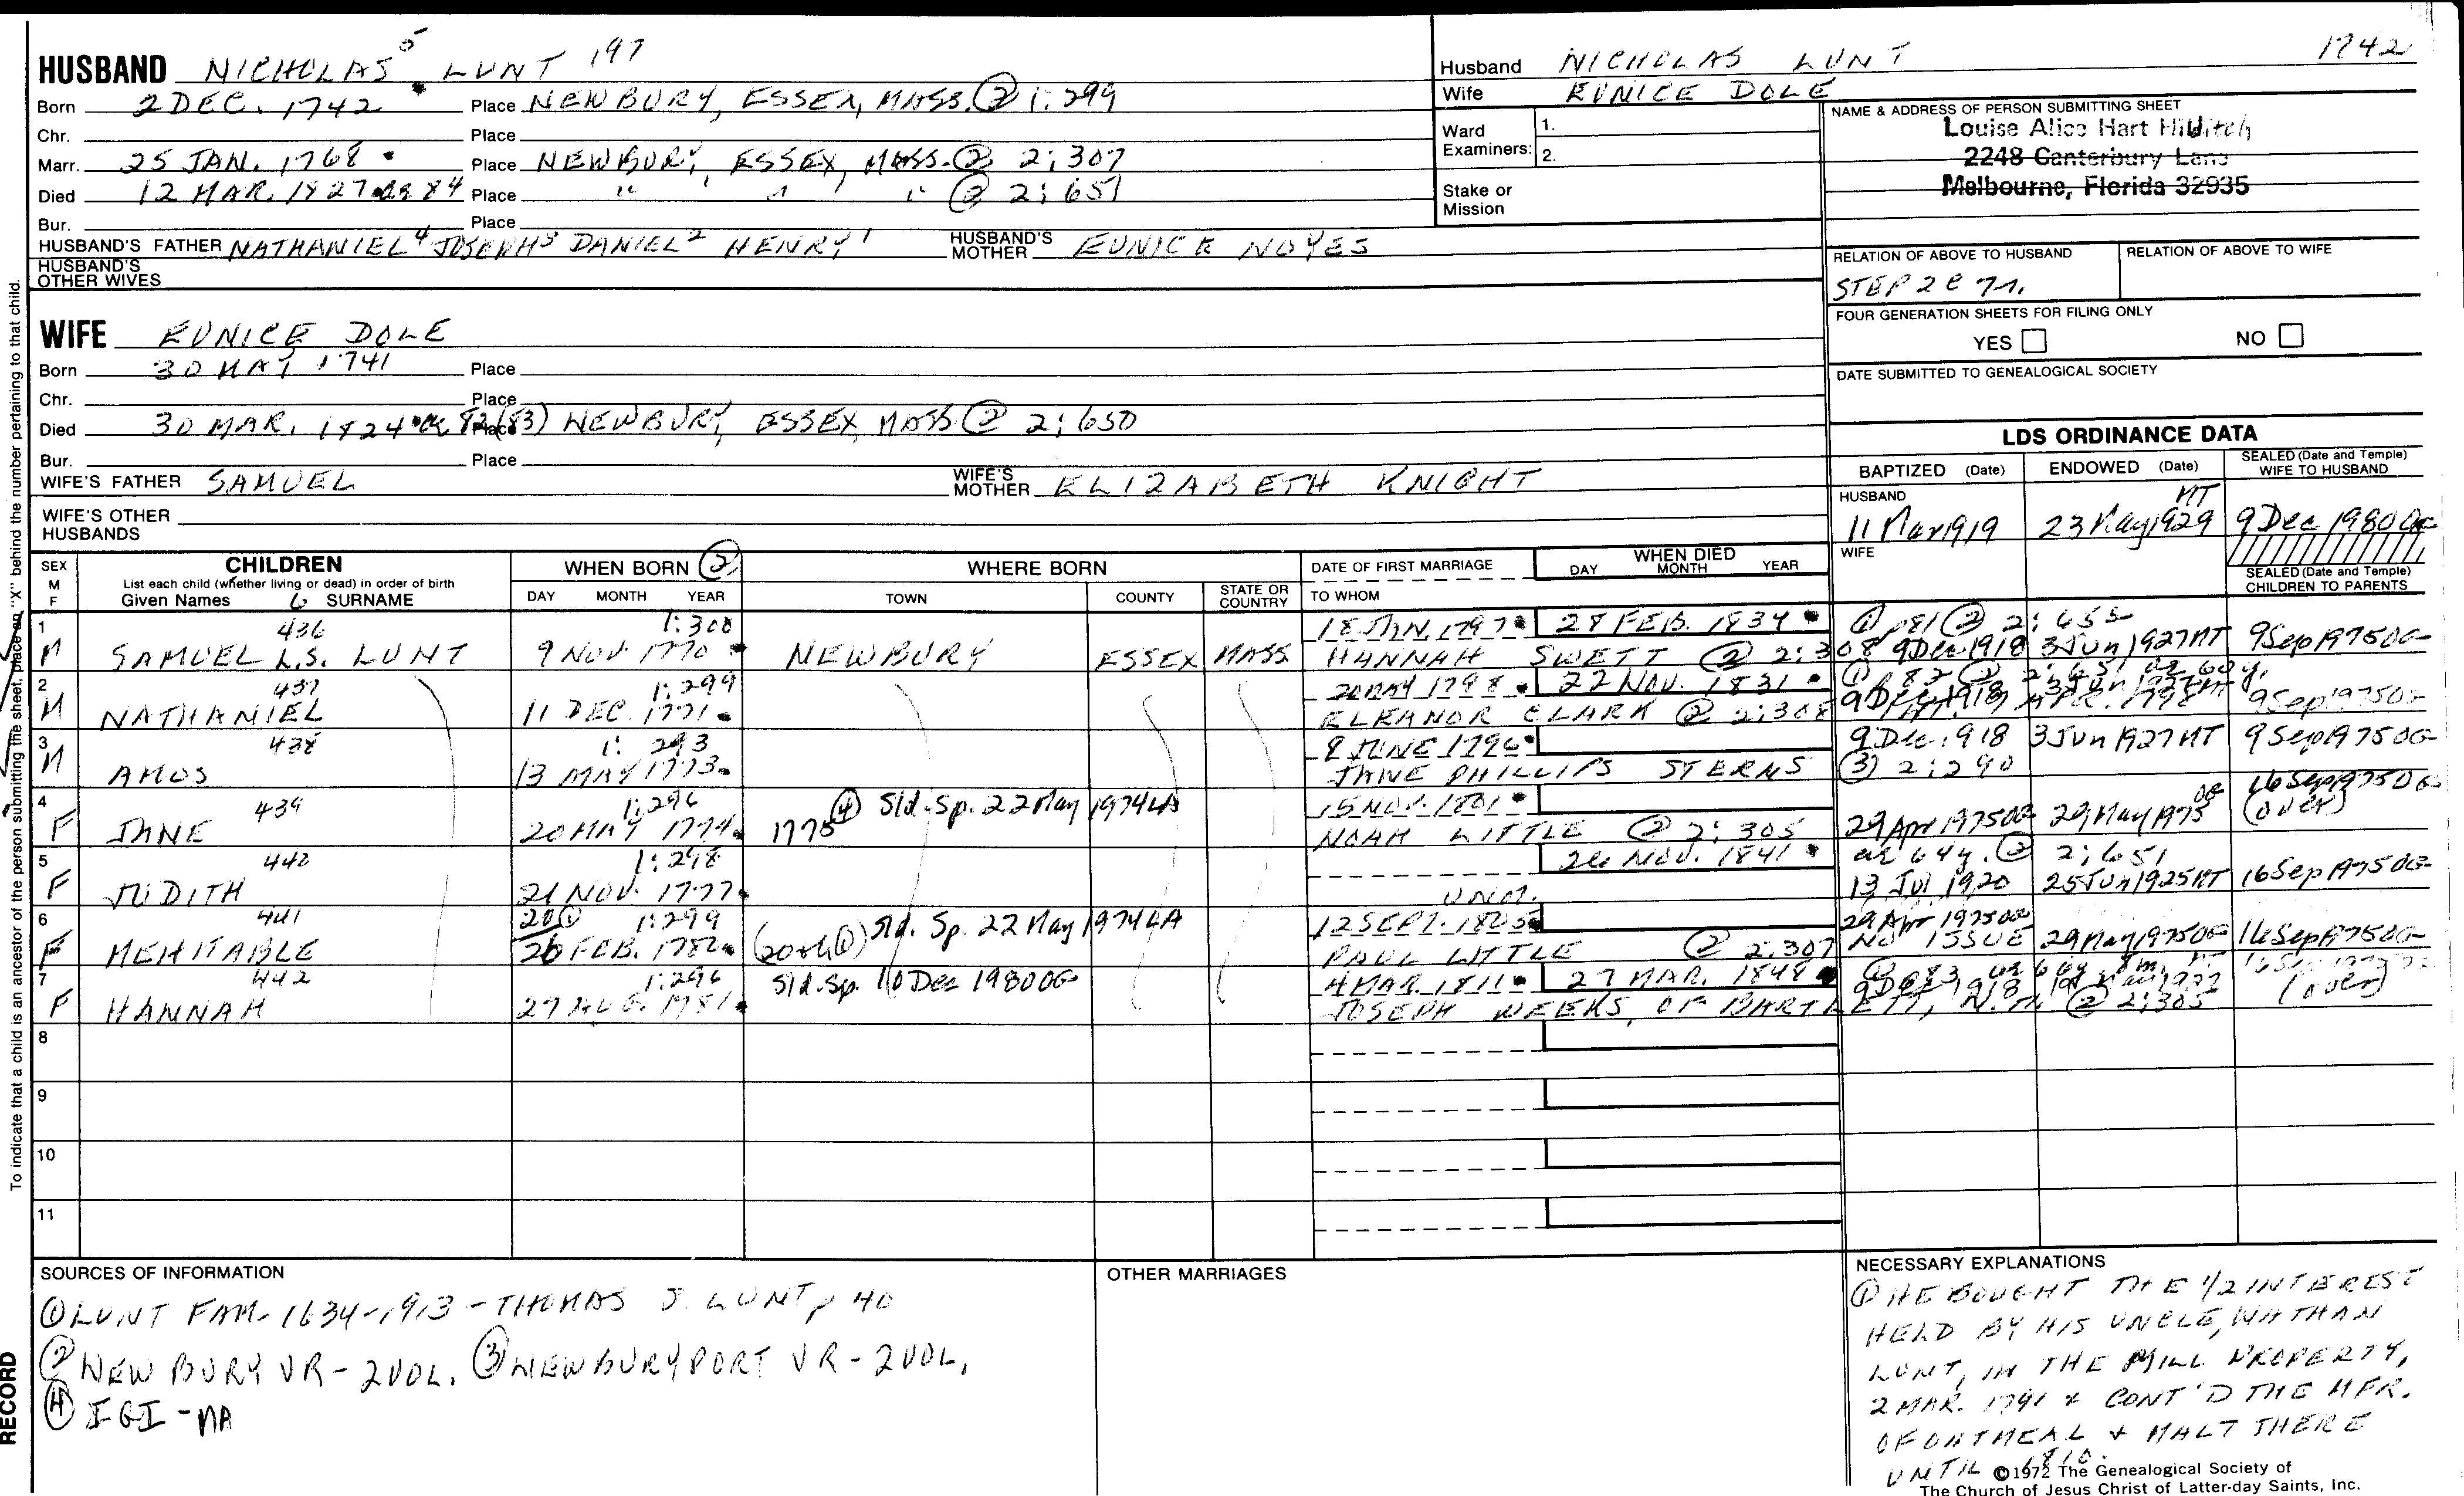 HUSBAND NICHOLAS⁵ LUNT 197
Born 2 DEC. 1742 Place NEWBURY, ESSEX, MASS. ② 1:299
Chr. Place
Marr. 25 JAN. 1768 Place NEWBURY, ESSEX, MASS. ② 2:307
Died 12 MAR. 1827 ae 84 Place " " " ② 2:651
Bur. Place
HUSBAND'S FATHER NATHANIEL⁴ JOSEPH³ DANIEL² HENRY¹ HUSBAND'S MOTHER EUNICE NOYES
HUSBAND'S OTHER WIVES
WIFE EUNICE DOLE
Born 30 MAY 1741 Place
Chr. Place
Died 30 MAR. 1824 ae 82 (83) Place NEWBURY, ESSEX, MASS ② 2:650
Bur. Place
WIFE'S FATHER SAMUEL WIFE'S MOTHER ELIZABETH KNIGHT
WIFE'S OTHER HUSBANDS
Husband NICHOLAS LUNT 1742
Wife EUNICE DOLE
Ward Examiners: 1.
2.
Stake or Mission
NAME & ADDRESS OF PERSON SUBMITTING SHEET
Louise Alice Hart Hilditch
2248 Canterbury Lane
Melbourne, Florida 32935
RELATION OF ABOVE TO HUSBAND RELATION OF ABOVE TO WIFE
STEP
FOUR GENERATION SHEETS FOR FILING ONLY
YES NO
DATE SUBMITTED TO GENEALOGICAL SOCIETY
LDS ORDINANCE DATA
BAPTIZED (Date) ENDOWED (Date) SEALED (Date and Temple) WIFE TO HUSBAND
HUSBAND
11 Mar 1919 23 May 1929 9 Dec 1980
WIFE
SEALED (Date and Temple) CHILDREN TO PARENTS
SEX M F CHILDREN WHEN BORN ② WHERE BORN DATE OF FIRST MARRIAGE WHEN DIED DAY MONTH YEAR
List each child (whether living or dead) in order of birth
Given Names 6 SURNAME DAY MONTH YEAR TOWN COUNTY STATE OR COUNTRY TO WHOM
1 436 1:300 18 JAN. 1797 28 FEB. 1834 ① p81 ② 2:655
M SAMUEL L.S. LUNT 9 NOV. 1770 NEWBURY ESSEX MASS HANNAH SWETT ② 2:308 9 Dec 1918 3 Jun 1927 MT 9 Sep 1975 OG
2 437 1:299 20 MAY 1798 22 NOV. 1831
M NATHANIEL 11 DEC. 1771 ELEANOR CLARK ② 2:308 9 Dec 1918 9 Sep 1975 OG
3 438 1:293 8 JUNE 1796 9 Dec 1918 3 Jun 1927 MT 9 Sep 1975 OG
M AMOS 13 MAY 1773 JANE PHILLIPS STERNS ③ 2:290
4 439 1:296 ④ Sld. Sp. 22 May 1974 LA 15 NOV. 1801 16 Sep 1975 OG
F JANE 20 MAY 1774 1775 NOAH LITTLE ② 2:305 29 Apr 1975 OG 29 May 1975 OG (over)
5 440 1:298 26 NOV. 1841 ae 64y. ② 2:651
F JUDITH 21 NOV. 1777 UNM. 13 Jul 1920 25 Jun 1925 MT 16 Sep 1975 OG
6 441 20 ① 1:299 Sld. Sp. 22 May 1974 LA 12 SEPT. 1805 29 Apr 1975 OG
F MEHITABLE 26 FEB. 1780 (20th ①) PAUL LITTLE ② 2:307 NO ISSUE 29 May 1975 OG 16 Sep 1975 OG
7 442 1:296 Sld. Sp. 10 Dec 1980 OG 4 MAR. 1811 27 MAR. 1848 ① p83
F HANNAH 27 AUG. 1781 JOSEPH WEEKS, OF BARTLETT, N.H. ② 2:305 9 Dec 1918 (over)
8
9
10
11
SOURCES OF INFORMATION
① LUNT FAM. 1634-1913 - THOMAS J. LUNT, p 40
② NEWBURY VR - 2 VOL. ③ NEWBURYPORT VR - 2 VOL.
④ IGI - MA
OTHER MARRIAGES
NECESSARY EXPLANATIONS
① HE BOUGHT THE 1/2 INTEREST
HELD BY HIS UNCLE, NATHAN
LUNT, IN THE MILL PROPERTY,
2 MAR. 1791 & CONT'D THE MFR.
OF OATMEAL & MALT THERE
UNTIL 1810.
©1972 The Genealogical Society of
The Church of Jesus Christ of Latter-day Saints, Inc.
To indicate that a child is an ancestor of the person submitting the sheet, place an "X" behind the number pertaining to that child.
RECORD